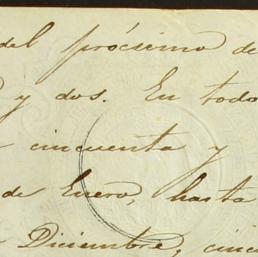 del prócsimo de
y dos. En todo
cincuenta y
de Enero, hasta
Diciembre, cinc